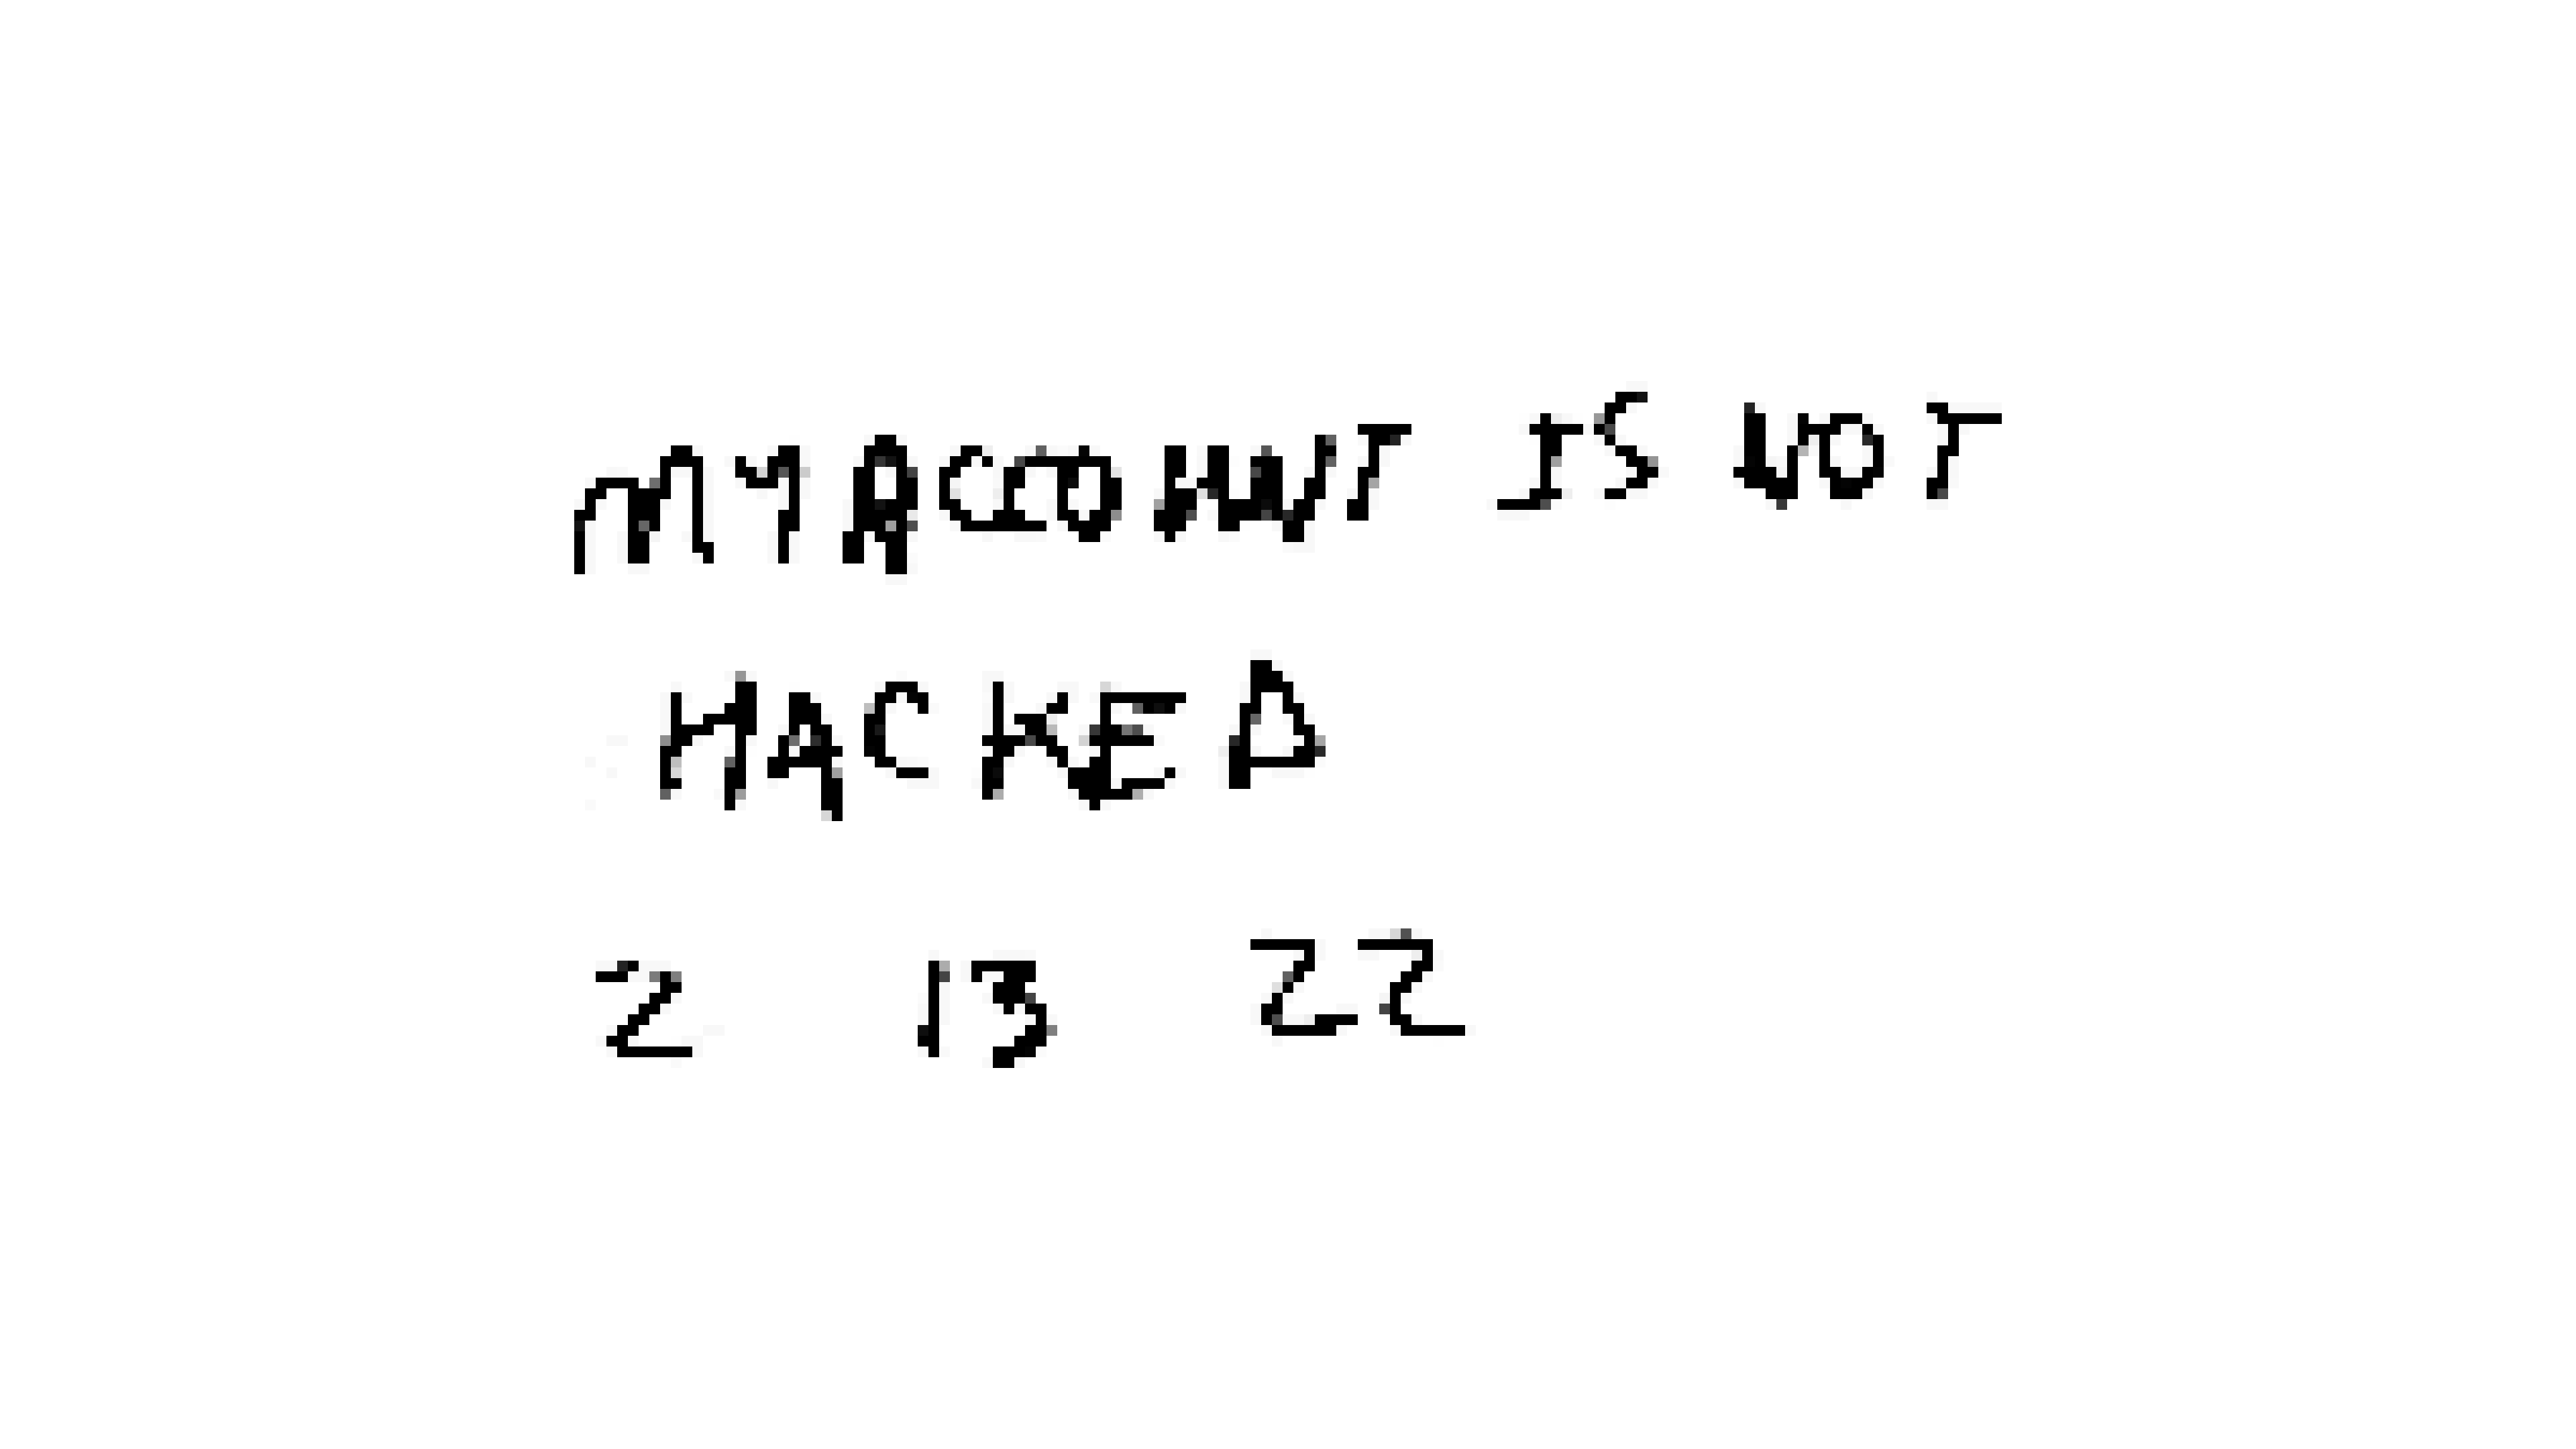 MY ACCOUNT IS NOT
HACKED
2 13 22